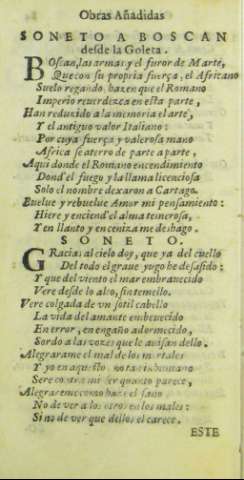 Obras Añadidas
SONETO A BOSCAN
desde la Goleta.
BOscan, las armas y el furor de Marte,
Que con su propria fuerça, el Africano
Suelo regando, hazen que el Romano
Imperio reuerdezca en esta parte,
Han reduzido a la memoria el arte,
Y el antiguo valor Italiano:
Por cuya fuerça y valerosa mano
Africa se aterro de parte a parte,
Aqui donde el Romano encendimiento
Dond'el fuego y la llama licenciosa
Solo el nombre dexaron a Cartago.
Buelue y rebuelue Amor mi pensamiento:
Hiere y enciend'el alma temerosa,
Y en llanto y en ceniza me deshago.
SONETO.
GRacias al cielo doy, que ya del cuello
Del todo el graue yugo he desasido:
Y que del viento el mar embrauecido
Vere desde lo alto, sin temello.
Vere colgada de vn sotil cabello
La vida del amante embeuecido
En error, en engaño adormecido,
Sordo a las vozes que le auisan dello.
Alegrarame el mal de los mortales
Y yo en aquesto no tan inhumano
Sere contra mi ser quanto parece,
Alegrareme como haze el sano
No de ver a los otros en los males:
Si no de ver que dellos el carece.
ESTE